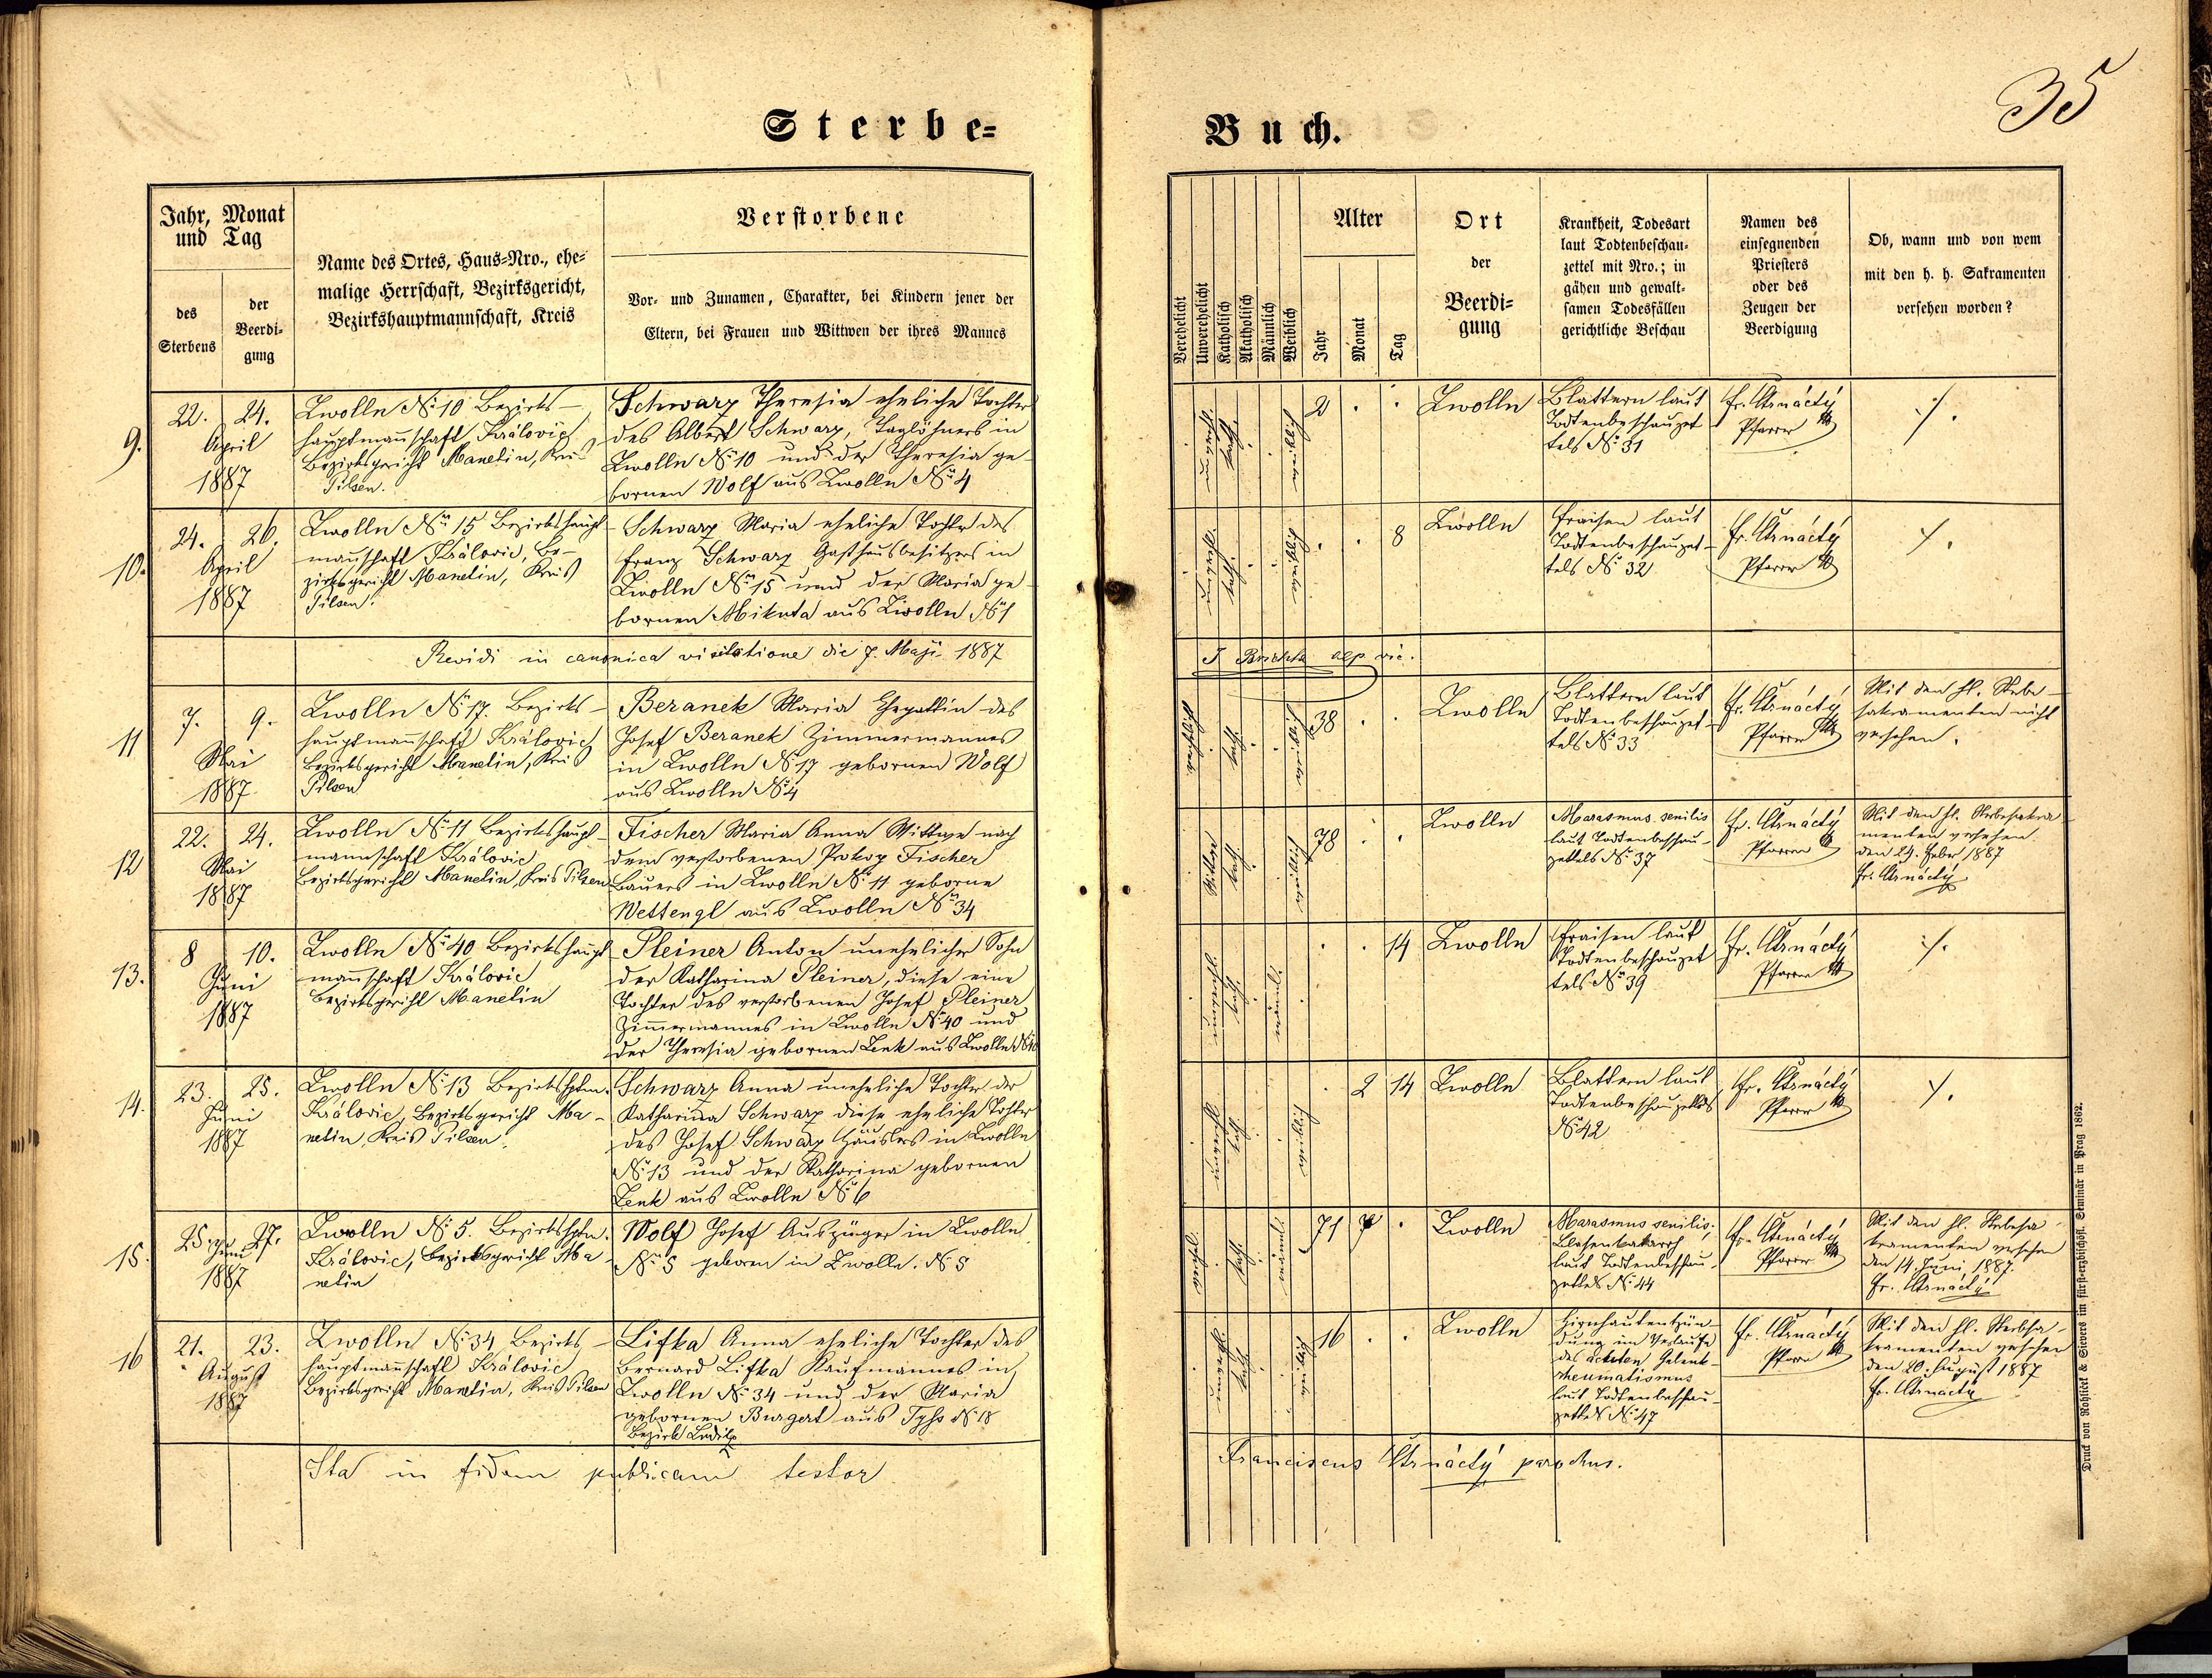 35
Sterbe=
Buch.
Jahr, Monat
und Tag
des
Sterbens
der
Beerdi=
gung
Name des Ortes, Haus=Nro., ehe=
malige Herrschaft, Bezirksgericht,
Bezirkshauptmannschaft, Kreis
Verstorbene
Vor= und Zunamen, Charakter, bei Kindern jener der
Eltern, bei Frauen und Wittwen der ihres Mannes
Verehelicht
Unverehelicht
Katholisch
Akatholisch
Männlich
Weiblich
Alter
Jahr
Monat
Tag
Ort
der
Beerdi=
gung
Krankheit, Todesart
laut Todtenbeschau=
zettel mit Nro.; in
gähen und gewalt=
samen Todesfällen
gerichtliche Beschau
Namen des
einsegnenden
Priesters
oder des
Zeugen der
Beerdigung
Ob, wann und von wem
mit den h. h. Sakramenten
versehen worden?
9.
22. 24.
April
1887
Zwolln No 10 Bezirks-
hauptmañschaft Královic
Bezirksgericht Manetin, Kreis
Pilsen.
Schwarz Theresia eheliche Tochter
des Albert Schwarz, Taglöhners in
Zwolln No 10 und der Theresia ge-
bornen Wolf aus Zwolln No 4
2 . .
Zwolln
Blattern laut
Todtenbeschauzet
tels No 31
Fr. Utrnáctý
Pfarrer
./.
10.
24. 26.
April
1887
Zwolln No 15 Bezirkshaupt-
mañschaft Královic, Be-
zirksgericht Manetin, Kreis
Pilsen.
Schwarz Maria eheliche Tochter des
Franz Schwarz Gasthausbesitzers in
Zwolln No 15 und der Maria ge-
bornen Mikuta aus Zwolln No 1
. . 8
Zwolln
Fraisen laut
Todtenbeschauzet-
tels No 32
Fr. Utrnáctý
Pfarrer
./.
Revidi in canonica visitatione die 7. Maji 1887
11
7. 9.
Mai
1887
Zwolln No 17. Bezirks-
hauptmañschaft Královic
Bezirksgericht Manetin, Kreis
Pilsen
Beranek Maria Ehegattin des
Josef Beranek Zimmermannes
in Zwolln No 17 gebornen Wolf
aus Zwolln No 4
38 . .
Zwolln
Blattern laut
Todtenbeschauzet-
tels No 33
Fr. Utrnáctý
Pfarrer
Mit den hl. Sterbe-
sakramenten nicht
versehen.
12
22. 24.
Mai
1887
Zwolln No 11 Bezirkshaupt-
mannschaft Královic
Bezirksgericht Manetin, Kreis Pilsen
Fischer Maria Anna Wittwe nach
dem verstorbenen Prokop Fischer
Bauers in Zwolln No 11 geborne
Wettengl aus Zwolln No 34
78 . .
Zwolln
Marasmus senilis
laut Todtenbeschau-
zettels No 37
Fr. Utrnáctý
Pfarrer
Mit den hl. Sterbesakra
menten versehen
den 24. Feber 1887
Fr. Utrnáctý
13.
8 10.
Juni
1887
Zwolln No 40 Bezirkshaupt
mañschaft Královic
Bezirksgericht Manetin
Pleiner Anton unehelicher Sohn
der Katharina Pleiner, diese eine
Tochter des verstorbenen Josef Pleiner
Zimmermannes in Zwolln No 40 und
der Theresia gebornen Zenk aus Zwolln
. . 14
Zwolln
Fraisen laut
Todtenbeschauzet
tels No 39
Fr. Utrnáctý
Pfarrer
./.
14.
23. 25.
Juni
1887
Zwolln No 13 Bezirkshptm.
Královic, Bezirksgericht Ma-
netin, Kreis Pilsen.
Schwarz Anna uneheliche Tochter der
Katharina Schwarz diese eheliche Tochter
des Josef Schwarz Häuslers in Zwolln
No 13 und der Katharina gebornen
Zenk aus Zwolln No 6
. 2 14
Zwolln
Blattern laut
Todtenbeschauzettels
No 42
Fr. Utrnáctý
Pfarrer
./.
15.
25. Juni 27.
1887
Zwolln No 5. Bezirkshptm.
Královic, Bezirksgericht Ma-
netin
Wolf Josef Auszüger in Zwolln
No 5 geboren in Zwolln. No 5
71 7 .
Zwolln
Marasmus senilis;
Blasenkatarrh
laut Todtenbeschau-
zettels No 44
Fr. Utrnáctý
Pfarrer
Mit den hl. Sterbesa-
kramenten versehen
den 14. Juni 1887.
Fr. Utrnáctý
16
21. 23.
August
1887
Zwolln No 34 Bezirks-
hauptmañschaft Královic
Bezirksgericht Manetin, Kreis Pilsen
Lifka Anna eheliche Tochter des
Bernard Lifka Kaufmannes in
Zwolln No 34 und der Maria
gebornen Burgert aus Tyss No 18
Bezirk Luditz
16 . .
Zwolln
Hirnhautentzün-
dung im Verlaufe
des acuten Gelenk-
rheumatismus
laut Todtenbeschau-
zettels No 47
Fr. Utrnáctý
Pfarrer
Mit den hl. Sterbsa-
kramenten versehen
den 20. August 1887
Fr. Utrnáctý
Ita in fidem publicam testor
Franciscus Utrnáctý parochus.
Druck von Rohliček & Sievers im fürst=erzbischöfl. Seminär in Prag 1862.